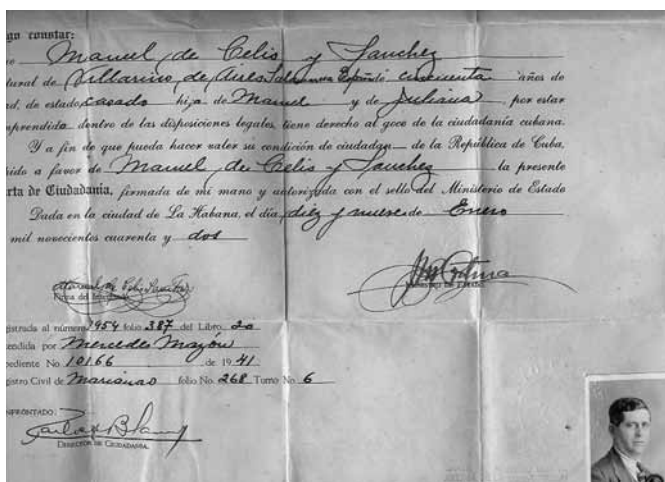 go constar:
Manuel de Celis y Sanchez
tural de Villarino de Aires Salamanca España cincuenta años de
ad, de estado, casado hijo de Manuel y de Juliana, por estar
mprendido dentro de las disposiciones legales, tiene derecho al goce de la ciudadanía cubana.
Y a fin de que pueda hacer valer su condición de ciudadan— de la República de Cuba,
pido a favor de Manuel de Celis y Sanchez la presente
rta de Ciudadanía, firmada de mi mano y autorizada con el sello del Ministerio de Estado
Dada en la ciudad de La Habana, el día, diez y nueve de Enero
mil novecientos cuarenta y dos
Manuel de Celis Sanchez
Firma del Interesado
Ministro de Estado
gistrada al número 1954 folio 387 del Libro 20
tendida por Mercedes Mazón
pediente No 10166 de 1941
gistro Civil de Marianao folio No. 268 Tomo No 6
NFRONTADO:
Director de Ciudadania.